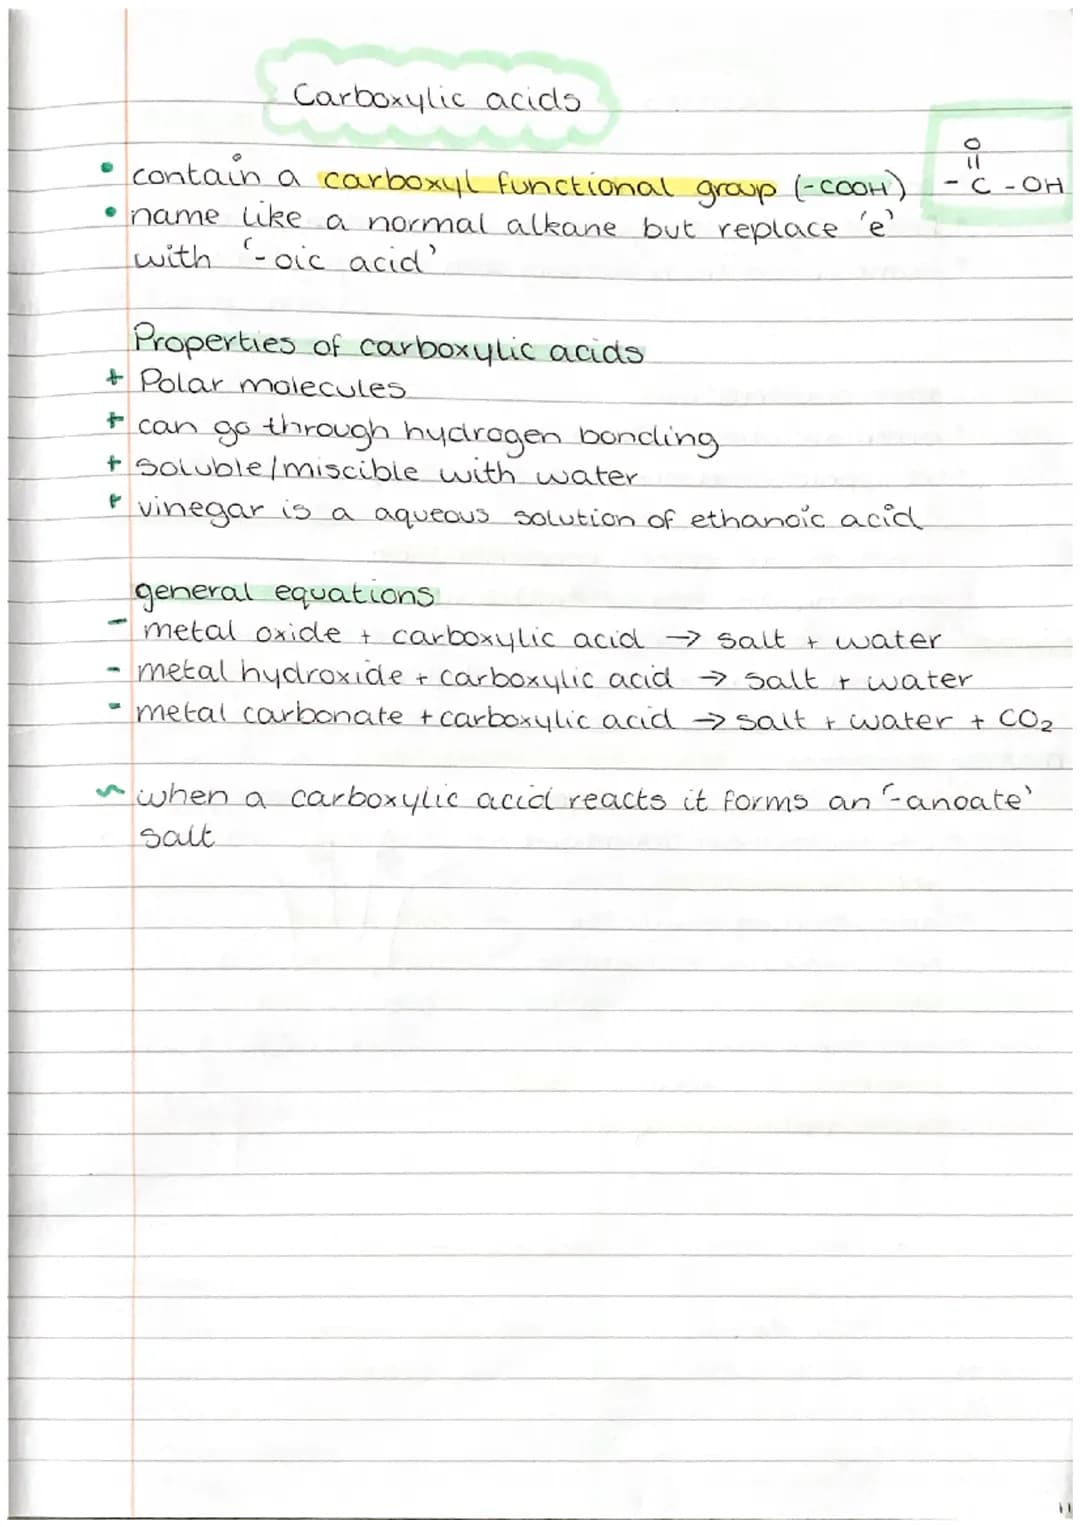 Carboxylic acids
• contain a carboxyl functional group (-COOH)
O
||
- C - OH
• name like a normal alkane but replace 'e'
with '-oic acid'
Properties of carboxylic acids
+ Polar molecules
+ can go through hydrogen bonding
+ soluble/miscible with water
+ vinegar is a aqueous solution of ethanoic acid
general equations
- metal oxide + carboxylic acid → salt + water
- metal hydroxide + carboxylic acid → salt + water
- metal carbonate + carboxylic acid → salt + water + CO₂
~ when a carboxylic acid reacts it forms an '-anoate'
salt